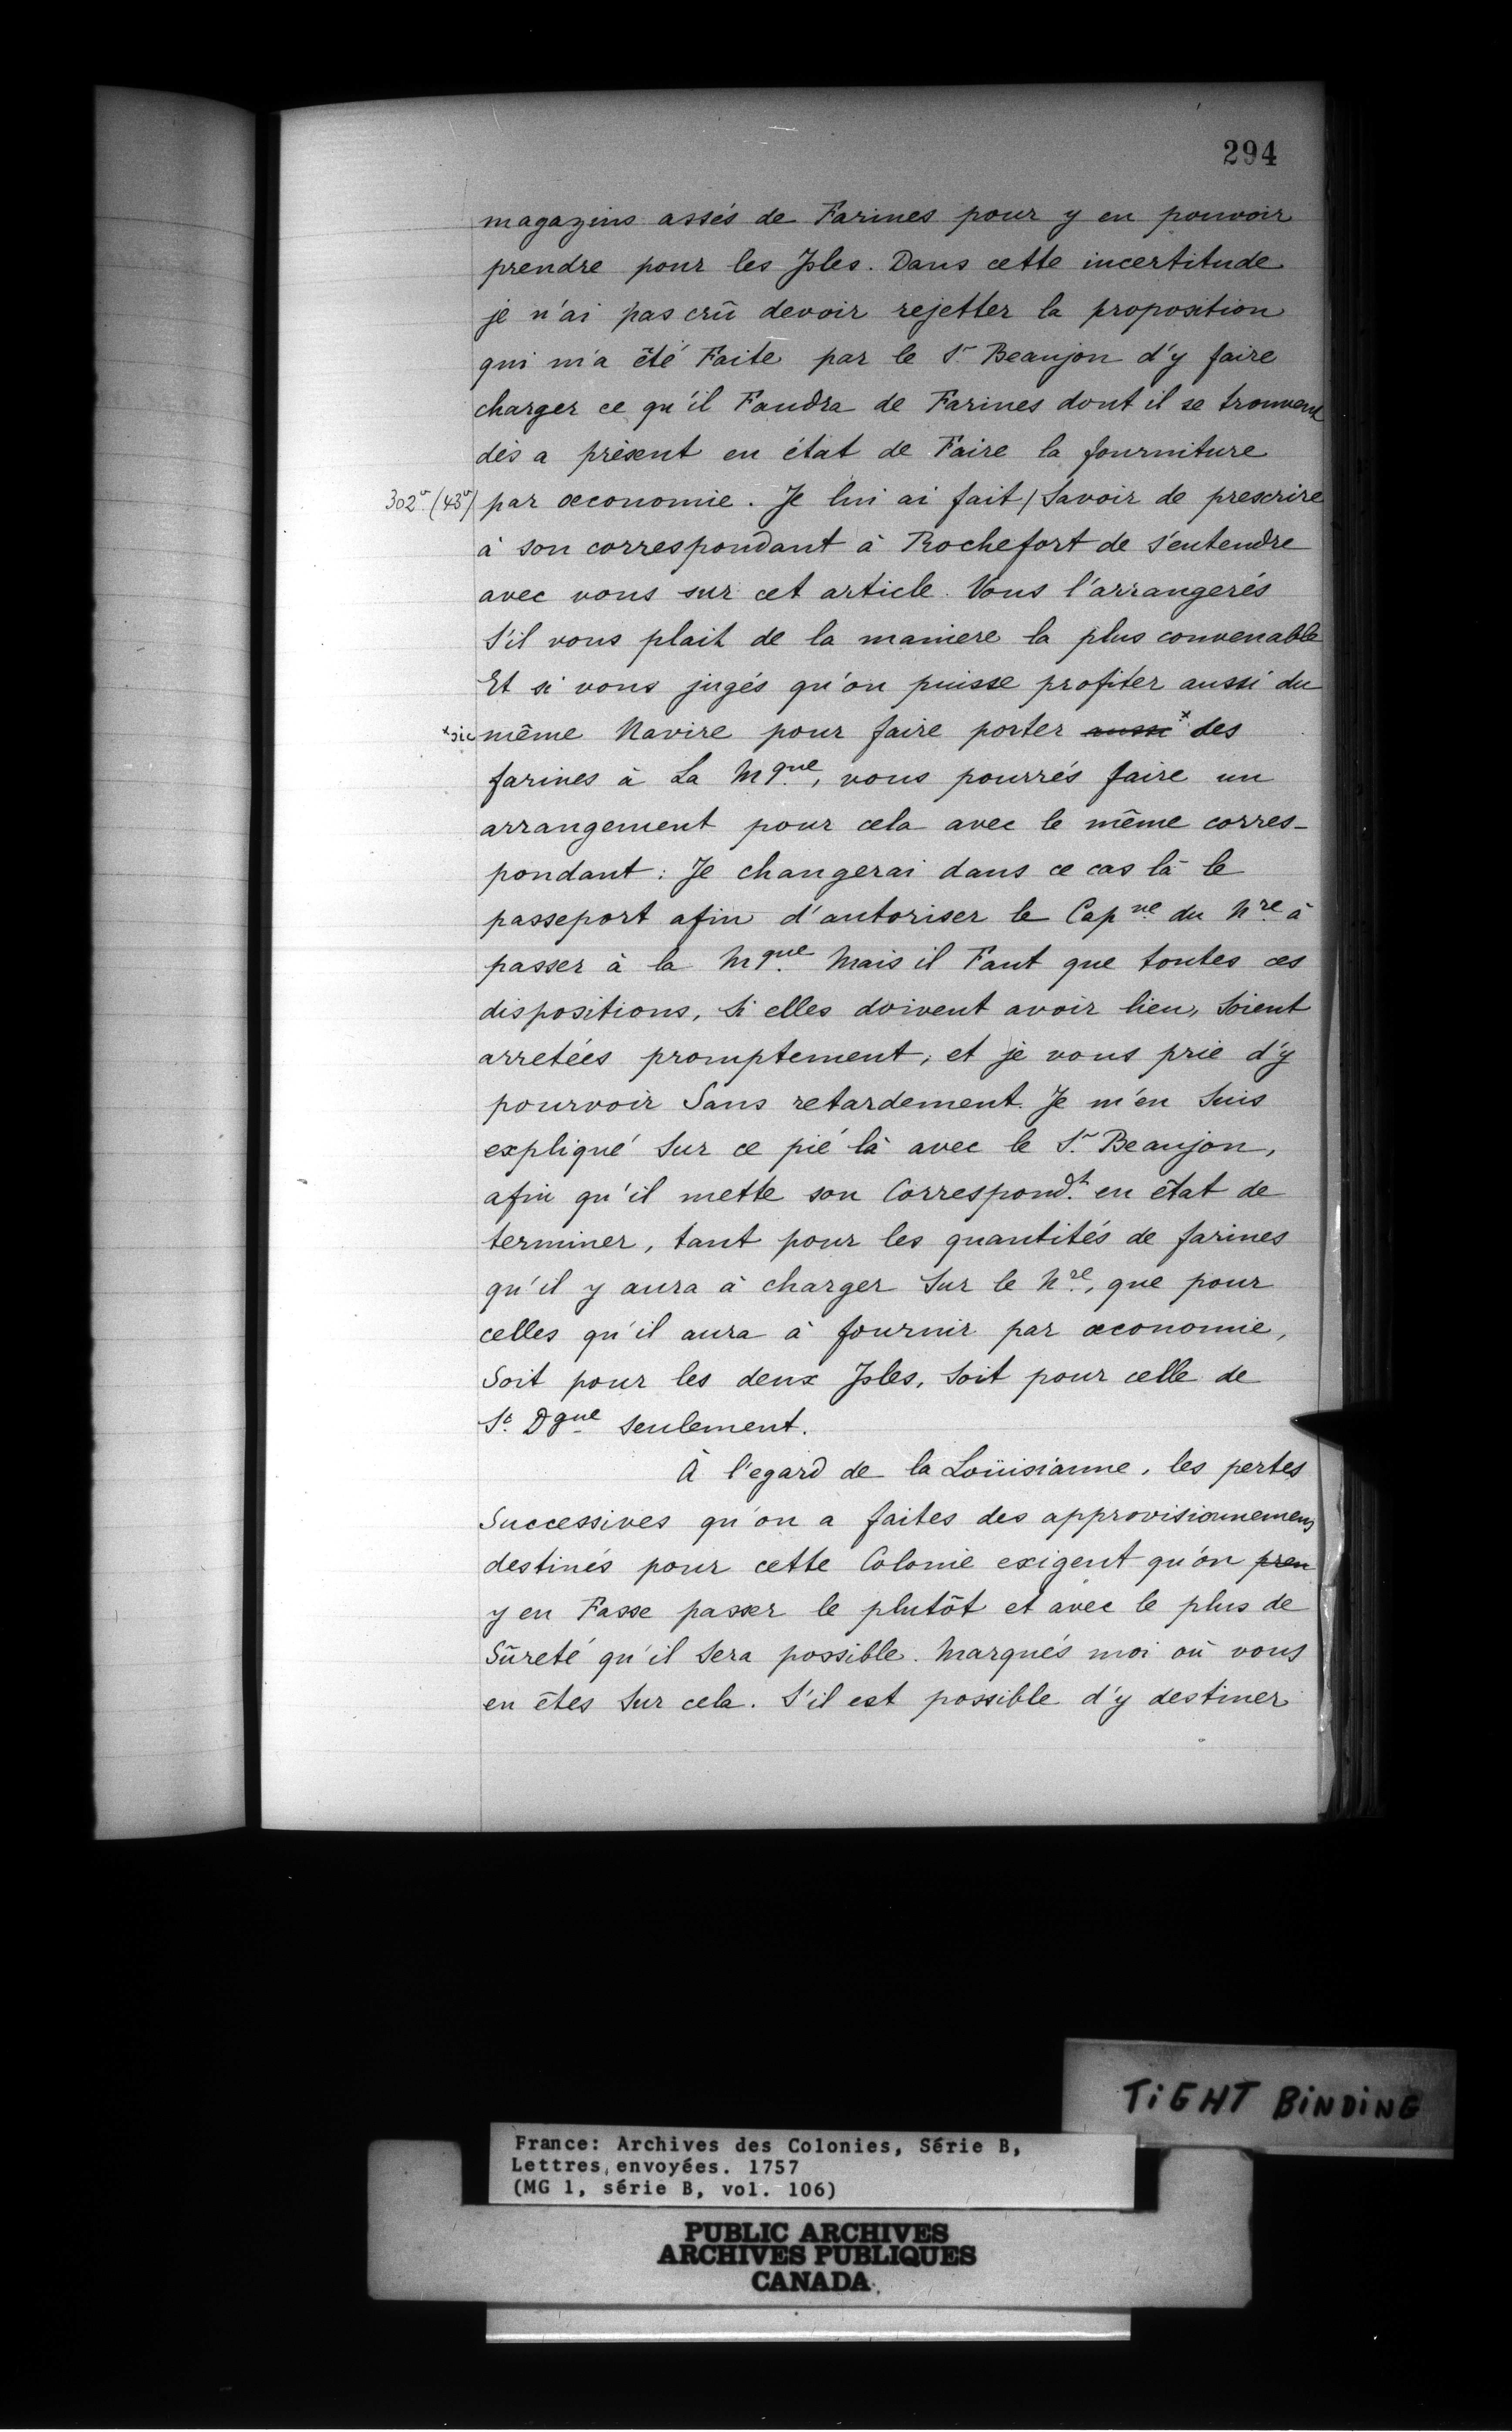 294
magazins assés de Farines pour y en pouvoir
prendre pour les Isles. Dans cette incertitude
je n'ai pas crû devoir rejetter la proposition
qui m'a êté Faite par le Sr. Beaujon d'y faire
charger ce qu'il Faudra de Farines dont il se trouvent
dès a présent en état de Faire la fourniture
302v (43v) par œconomie. Je lui ai fait / Savoir de prescrire
à son correspondant à Rochefort de s'entendre
avec vous sur cet article. Vous l'arrangerés
S'il vous plait de la maniere la plus convenable
Et si vous jugés qu'on puisse profiter aussi du
xsic même Navire pour faire porter aussi x des
farines à La Mque, vous pourrés faire un
arrangement pour cela avec le même corres-
pondant : Je changerai dans ce cas là le
passeport afin d'autoriser le Capne du Nre à
passer à la Mque. Mais il Faut que toutes ces
dispositions, Si elles doivent avoir lieu, Soient
arretées promptement, et je vous prie d'y
pourvoir Sans retardement. Je m'en Suis
expliqué Sur ce pié là avec le Sr. Beaujon,
afin qu'il mette son Correspondt. en êtat de
terminer, tant pour les quantités de farines
qu'il y aura à charger Sur le Nre, que pour
celles qu'il aura à fournir par œconomie,
Soit pour les deux Isles, Soit pour celle de
St. Dgue seulement.
À l'egard de la Loüisianne, les pertes
Successives qu'on a faites des approvisionnemens
destinés pour cette Colonie exigent qu'on pren
y en Fasse passer le plutôt et avec le plus de
Sûreté qu'il Sera possible. Marqués moi où vous
en êtes Sur cela. S'il est possible d'y destiner
TiGHT BiNDiNG
France: Archives des Colonies, Série B,
Lettres envoyées. 1757
(MG 1, série B, vol. 106)
PUBLIC ARCHIVES
ARCHIVES PUBLIQUES
CANADA